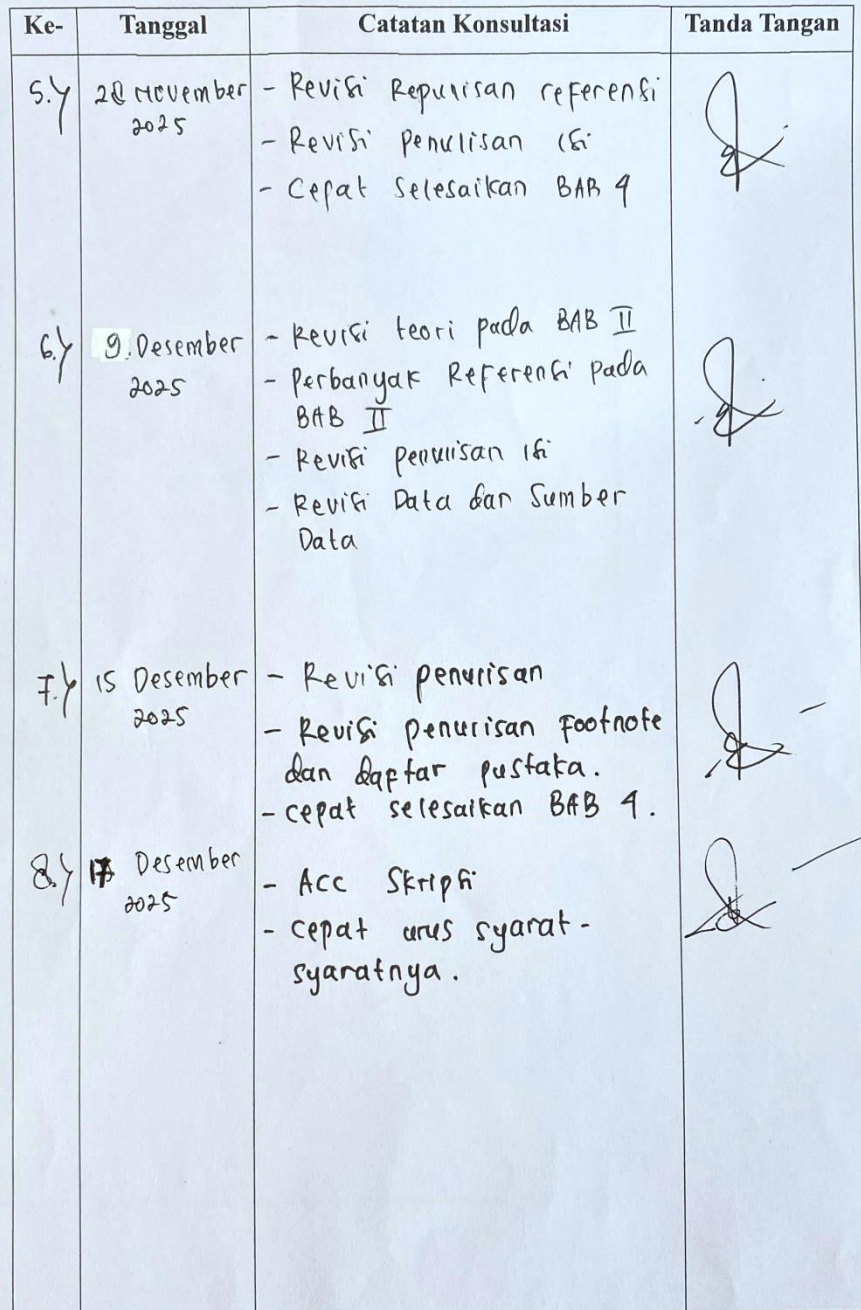 Ke- Tanggal Catatan Konsultasi Tanda Tangan
5.) 28 November - Revisi Repulisan referensi
2025 - Revisi Penulisan isi
- Cepat Selesaikan BAB 4
6.) 9. Desember - Revisi teori pada BAB II
2025 - Perbanyak Referensi pada
BAB II
- Revisi penulisan isi
- Revisi Data dan Sumber
Data
7.) 15 Desember - Revisi penulisan
2025 - Revisi penulisan Footnote
dan daftar pustaka.
- cepat selesaikan BAB 4.
8.) 17 Desember - Acc Skripsi
2025 - cepat urus syarat-
syaratnya.